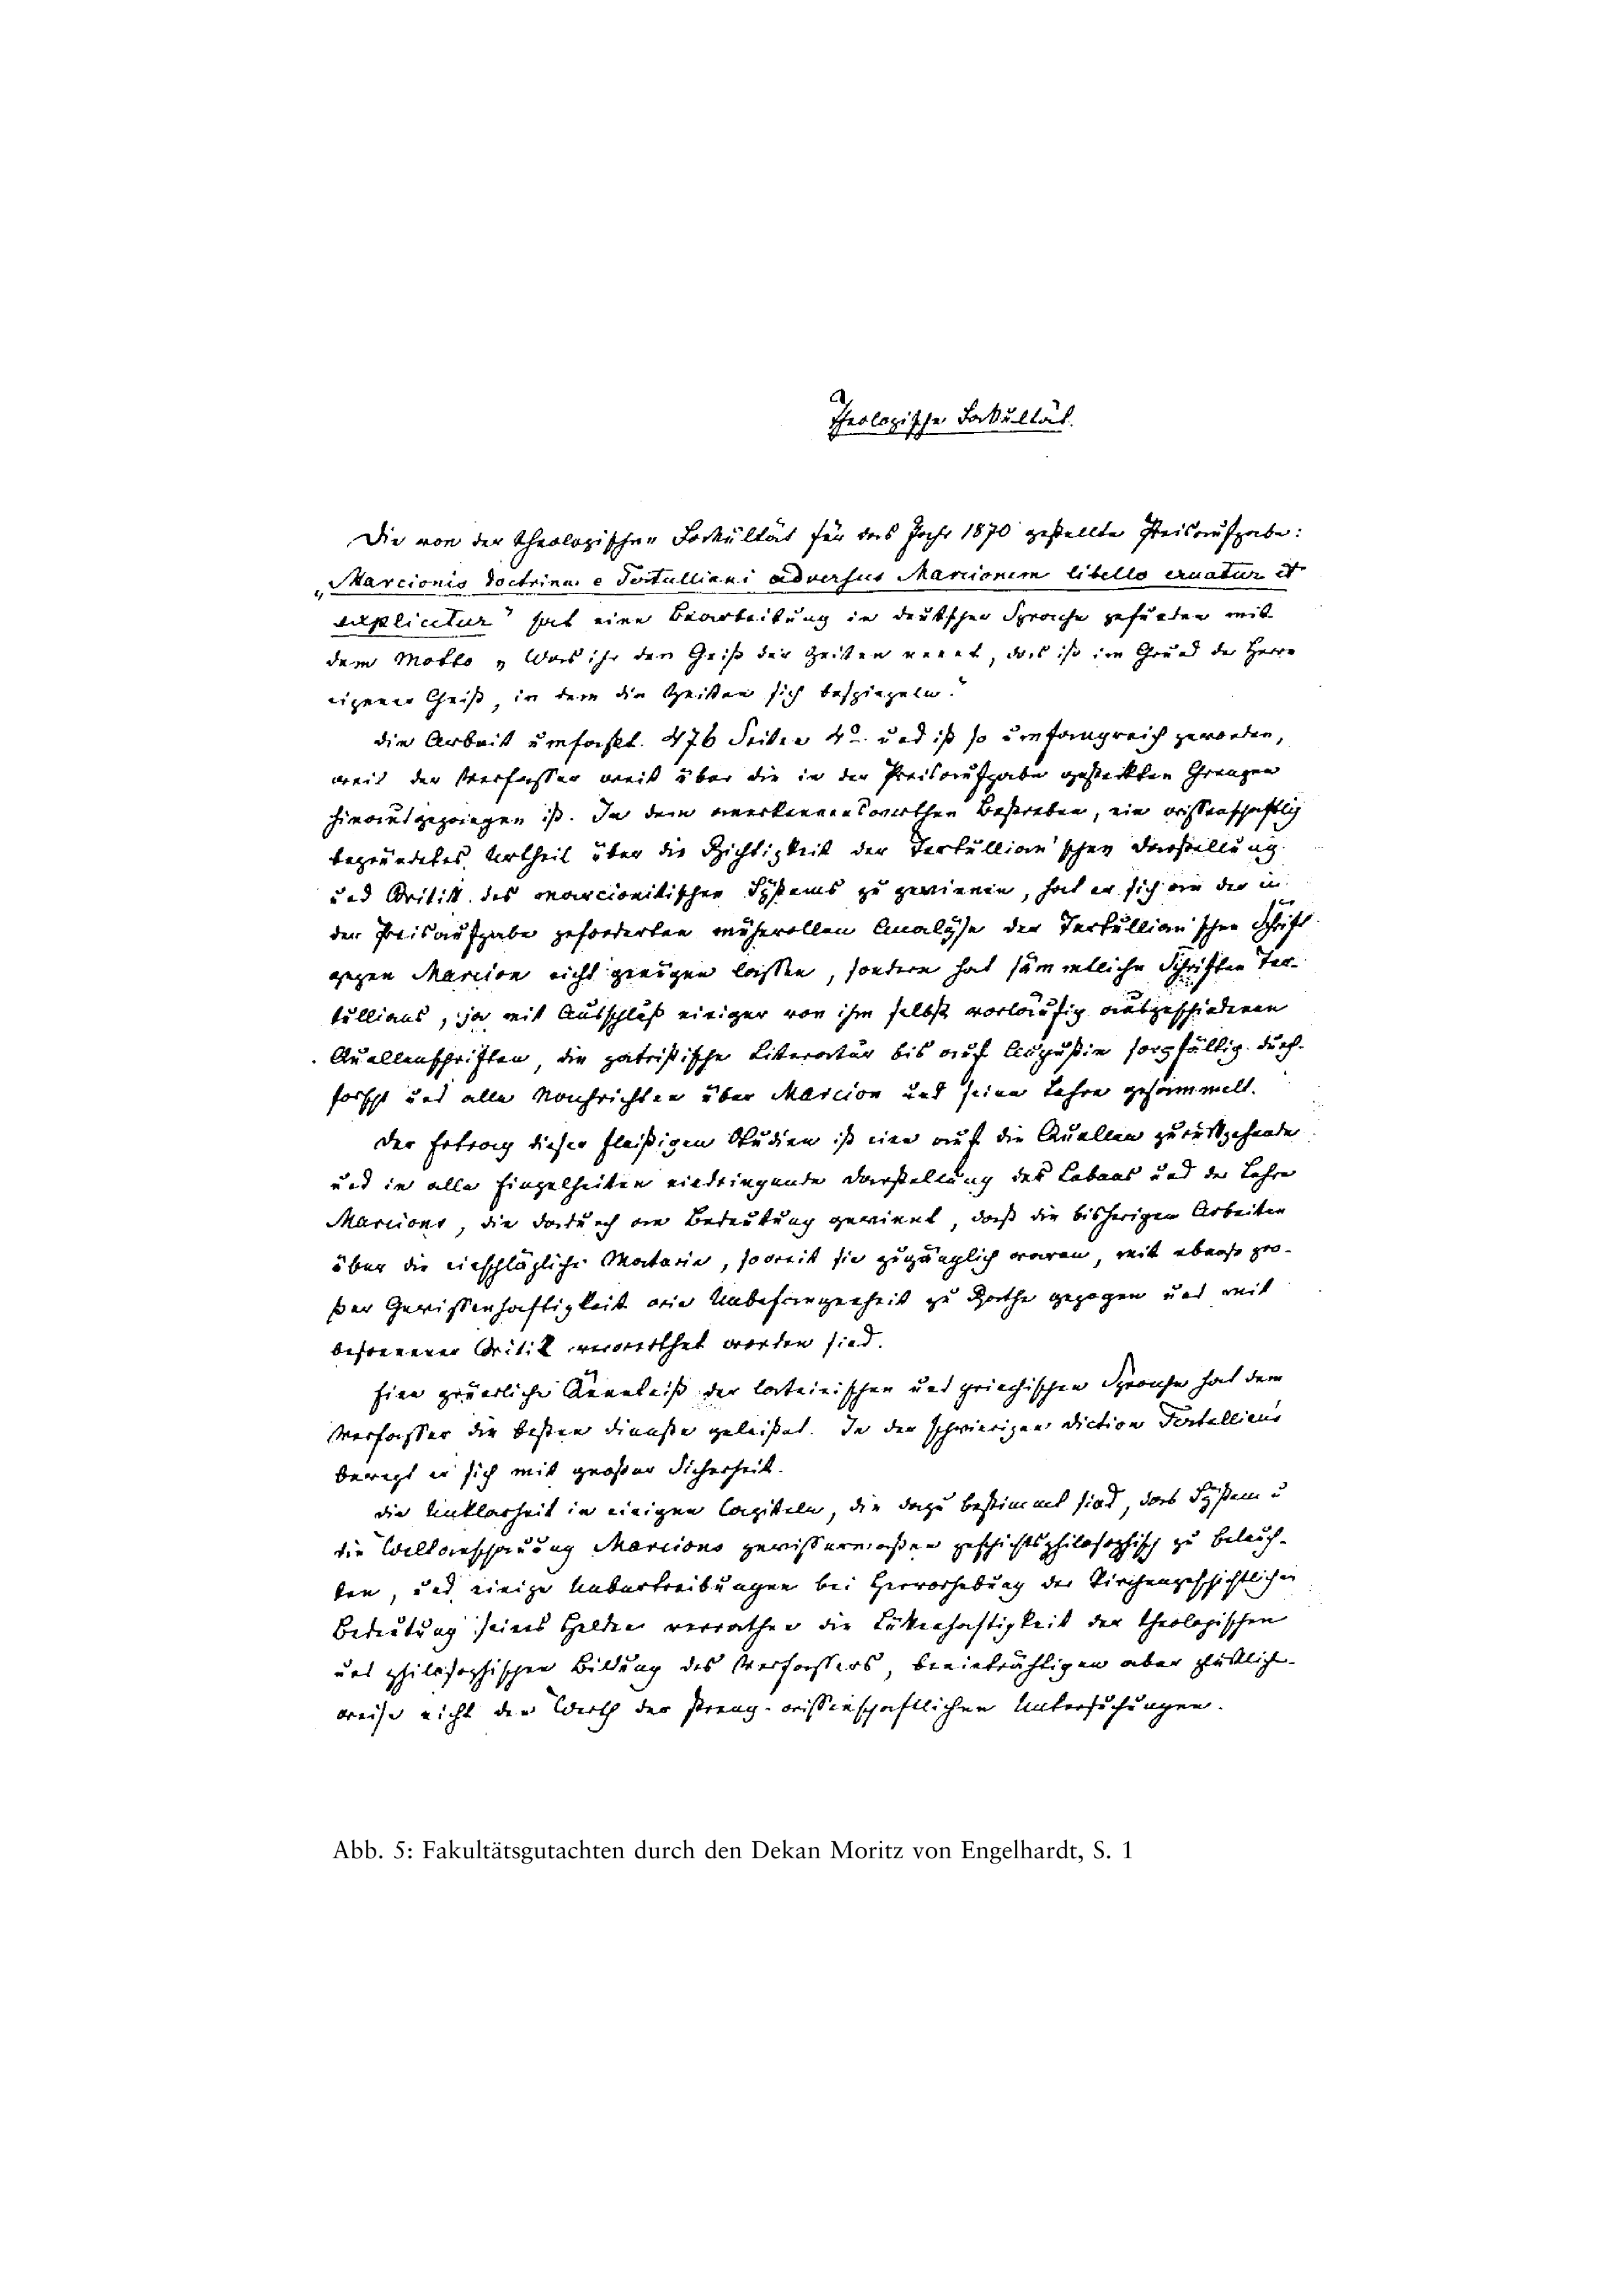 Theologische Fakultät.
Die von der theologischen Fakultät für das Jahr 1870 gestellte Preisaufgabe:
„Marcionis doctrina e Tertulliani adversus Marcionem libello eruatur et
explicetur" hat eine Bearbeitung in deutscher Sprache gefunden mit
dem Motto „Was ihr den Geist der Zeiten nennt, das ist im Grund der Herren
eigener Geist, in dem die Zeiten sich bespiegeln."
Die Arbeit umfaßt 476 Seiten 4°. und ist so umfangreich geworden,
weil der Verfasser weit über die in der Preisaufgabe gesteckten Grenzen
hinausgegangen ist. In dem anerkennenswerthen Bestreben, ein wissenschaftlich
begründetes Urtheil über die Richtigkeit der Tertullian'schen Darstellung
und Critik des marcionitischen Systems zu gewinnen, hat er sich an der in
der Preisaufgabe geforderten mühevollen Analyse der Tertullian'schen Schrift
gegen Marcion nicht genügen lassen, sondern hat sämmtliche Schriften Ter-
tullians, ja mit Ausschluß einiger von ihm selbst vorläufig ausgeschiedenen
Quellenschriften, die patristische Literatur bis auf Augustin sorgfältig durch-
forscht und alle Nachrichten über Marcion und seine Lehre gesammelt.
Der Ertrag dieser fleißigen Studien ist eine auf die Quellen zurückgehende
und in alle Einzelheiten eindringende Darstellung des Lebens und der Lehre
Marcions, die dadurch an Bedeutung gewinnt, daß die bisherigen Arbeiten
über die einschlägliche Materie, soweit sie zugänglich waren, mit ebenso gro-
ßer Gewissenhaftigkeit wie Unbefangenheit zu Rathe gezogen und mit
besonnener Critik verwerthet worden sind.
Eine gründliche Kenntniß der lateinischen und griechischen Sprache hat dem
Verfasser die besten Dienste geleistet. In der schwierigen Diction Tertullian's
bewegt er sich mit großer Sicherheit.
Die Unklarheit in einigen Capiteln, die dazu bestimmt sind, das System u
die Weltanschauung Marcions gewissermaßen geschichtsphilosophisch zu beleuch-
ten, und einige Uebertreibungen bei Hervorhebung der kirchengeschichtlichen
Bedeutung seines Helden verrathen die Lückenhaftigkeit der theologischen
und philosophischen Bildung des Verfassers, beeinträchtigen aber glücklicher-
weise nicht den Werth der streng-wissenschaftlichen Untersuchungen.
Abb. 5: Fakultätsgutachten durch den Dekan Moritz von Engelhardt, S. 1